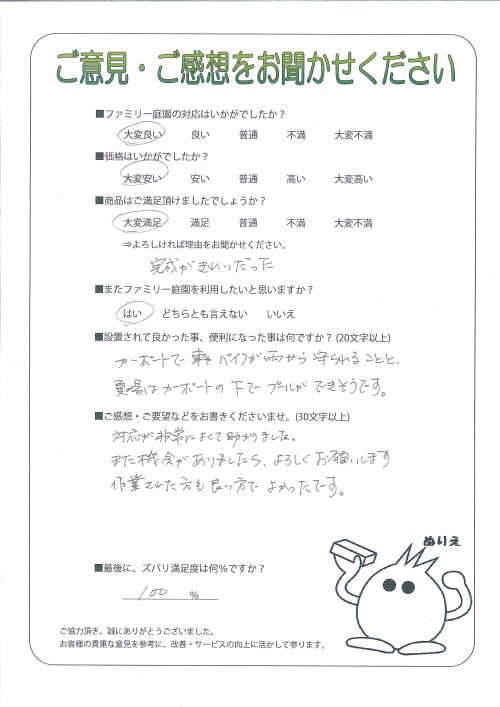 ご意見・ご感想をお聞かせください
■ファミリー庭園の対応はいかがでしたか？
大変良い 良い 普通 不満 大変不満
■価格はいかがでしたか？
大変安い 安い 普通 高い 大変高い
■商品はご満足頂けましたでしょうか？
大変満足 満足 普通 不満 大変不満
⇒よろしければ理由をお聞かせください。
完成がきれいだった
■またファミリー庭園を利用したいと思いますか？
はい どちらとも言えない いいえ
■設置されて良かった事、便利になった事は何ですか？(20文字以上)
カーポートで車やバイクが雨から守られることと、
夏場はカーポートの下でプールができそうです。
■ご感想・ご要望などをお書きくださいませ。(30文字以上)
対応が非常によくて助かりました。
また機会がありましたら、よろしくお願いします
作業された方も良い方でよかったです。
ぬりえ
■最後に、ズバリ満足度は何％ですか？
100 ％
ご協力頂き、誠にありがとうございました。
お客様の貴重な意見を参考に、改善・サービスの向上に活かして参ります。